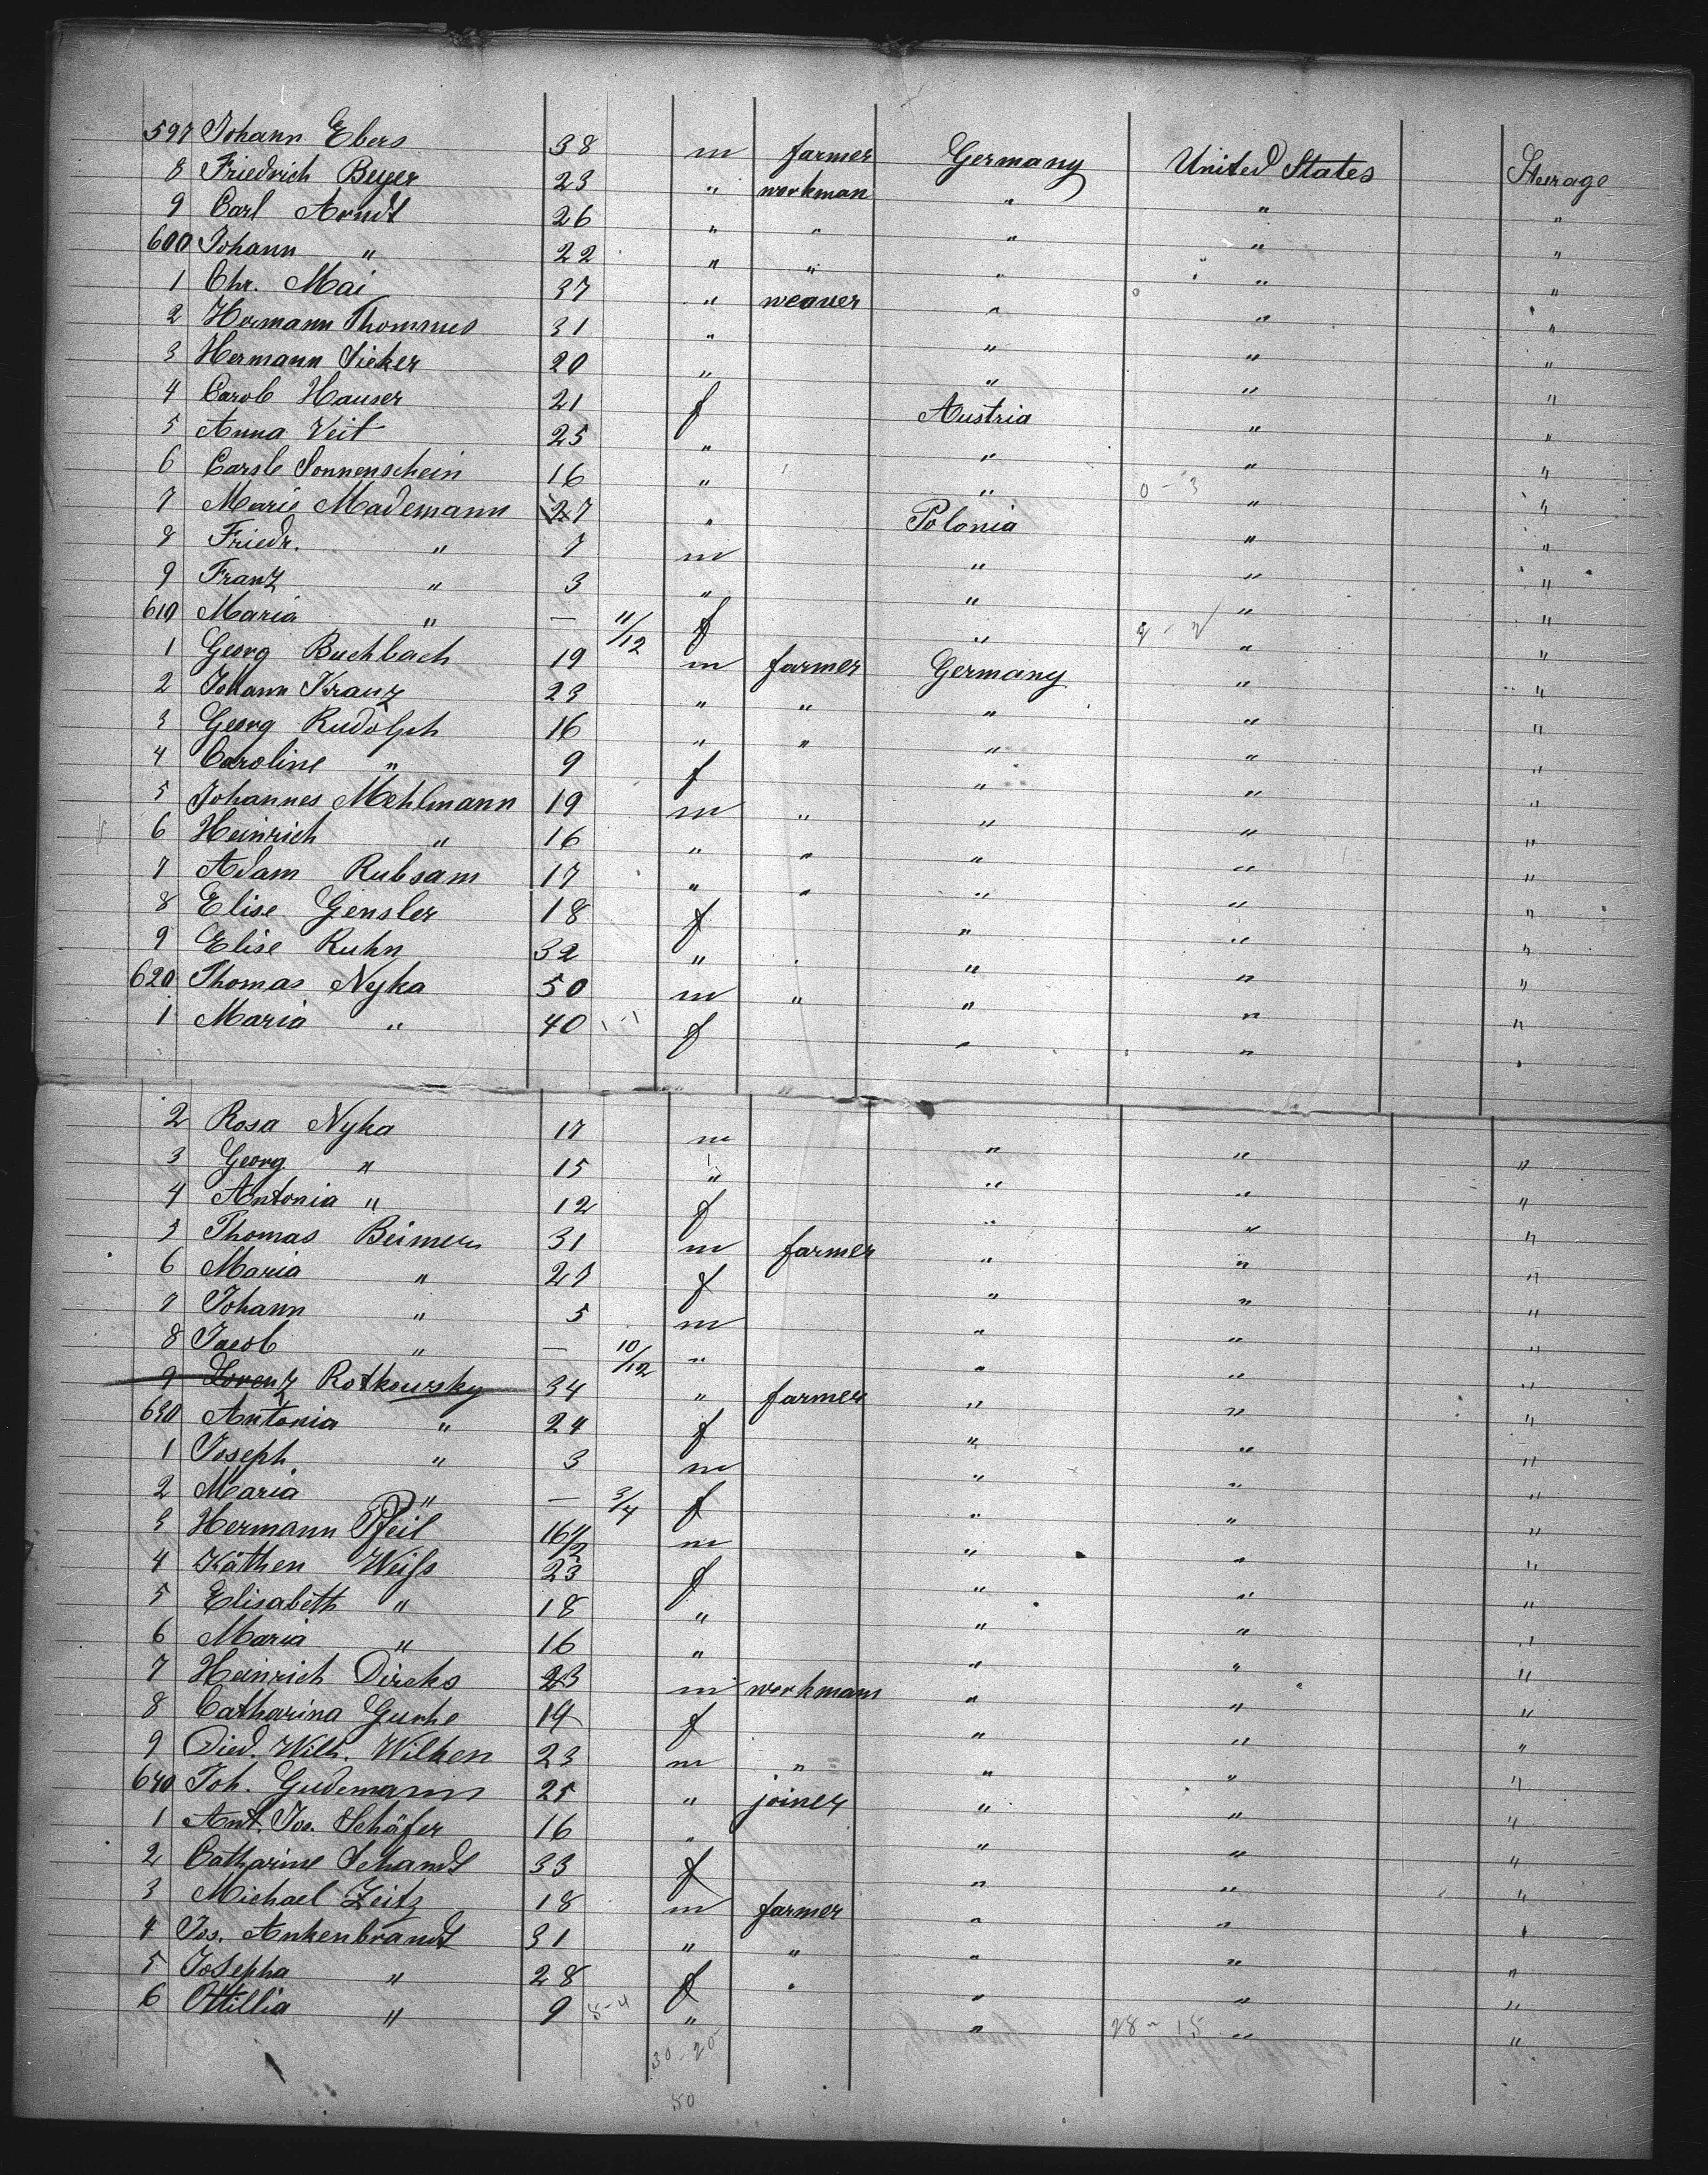 597 Johann Ebers 38 m farmer Germany United States Steerage
8 Friedrich Beyer 23 " workman " " "
9 Carl Arndt 26 " " " " "
600 Johann " 22 " " " " "
1 Chr. Mai 37 " weaver " " "
2 Hermann Thommes 31 " " " "
3 Hermann Sieker 20 " " " "
4 Carol Hauser 21 f Austria " "
5 Anna Veit 25 " " " "
6 Sonnenschein 16 " " 0-3 " "
7 Marie Mademann 27 " Polonia " "
8 Friedr. " 7 m " " "
9 Franz " 3 " " " "
610 Maria " — 11/12 f " " "
1 Georg Buchbach 19 m farmer Germany " "
2 Johann Kranz 23 " " " " "
3 Georg Rudolph 16 " " " " "
4 Caroline " 9 f " " "
5 Johannes Mehlmann 19 m " " " "
6 Heinrich " 16 " " " " "
7 Adam Rubsam 17 " " " " "
8 Elise Gensler 18 f " " "
9 Elise Kuhn 32 " " " "
620 Thomas Nyka 50 m " " " "
1 Maria " 40 1-1 f " " "
2 Rosa Nyka 17 m " " "
3 Georg " 15 " " " "
4 Antonia " 12 f " " "
5 Thomas 31 m farmer " " "
6 Maria " f " " "
7 Johann " 5 m " " "
8 Jacob " — 10/12 " " " "
9 Lorenz Rotkowsky 34 " farmer " " "
630 Antonia " 24 f " " "
1 Joseph " 3 m " " "
2 Maria " — 3/4 f " " "
3 Hermann Pfeil m " " "
4 Käthen Weiss 23 f " " "
5 Elisabeth " 18 " " " "
6 Maria " 16 " " " "
7 Heinrich Dircks 23 m workman " " "
8 Catharina Gurke 19 f " " "
9 Died. Wilh. Wilken 23 m " " " "
640 Joh. Gudemann 25 " joiner " " "
1 Ant. Jos. Schäfer 16 " " " "
2 Catharine Schandt 33 f " " "
3 Michael Zeitz 18 m farmer " " "
4 Jos. Ankenbrandt 31 " " " " "
5 Josepha " 28 f " " " "
6 Ottillia " 9 5-4 " " 28-15 " "
30-20
50